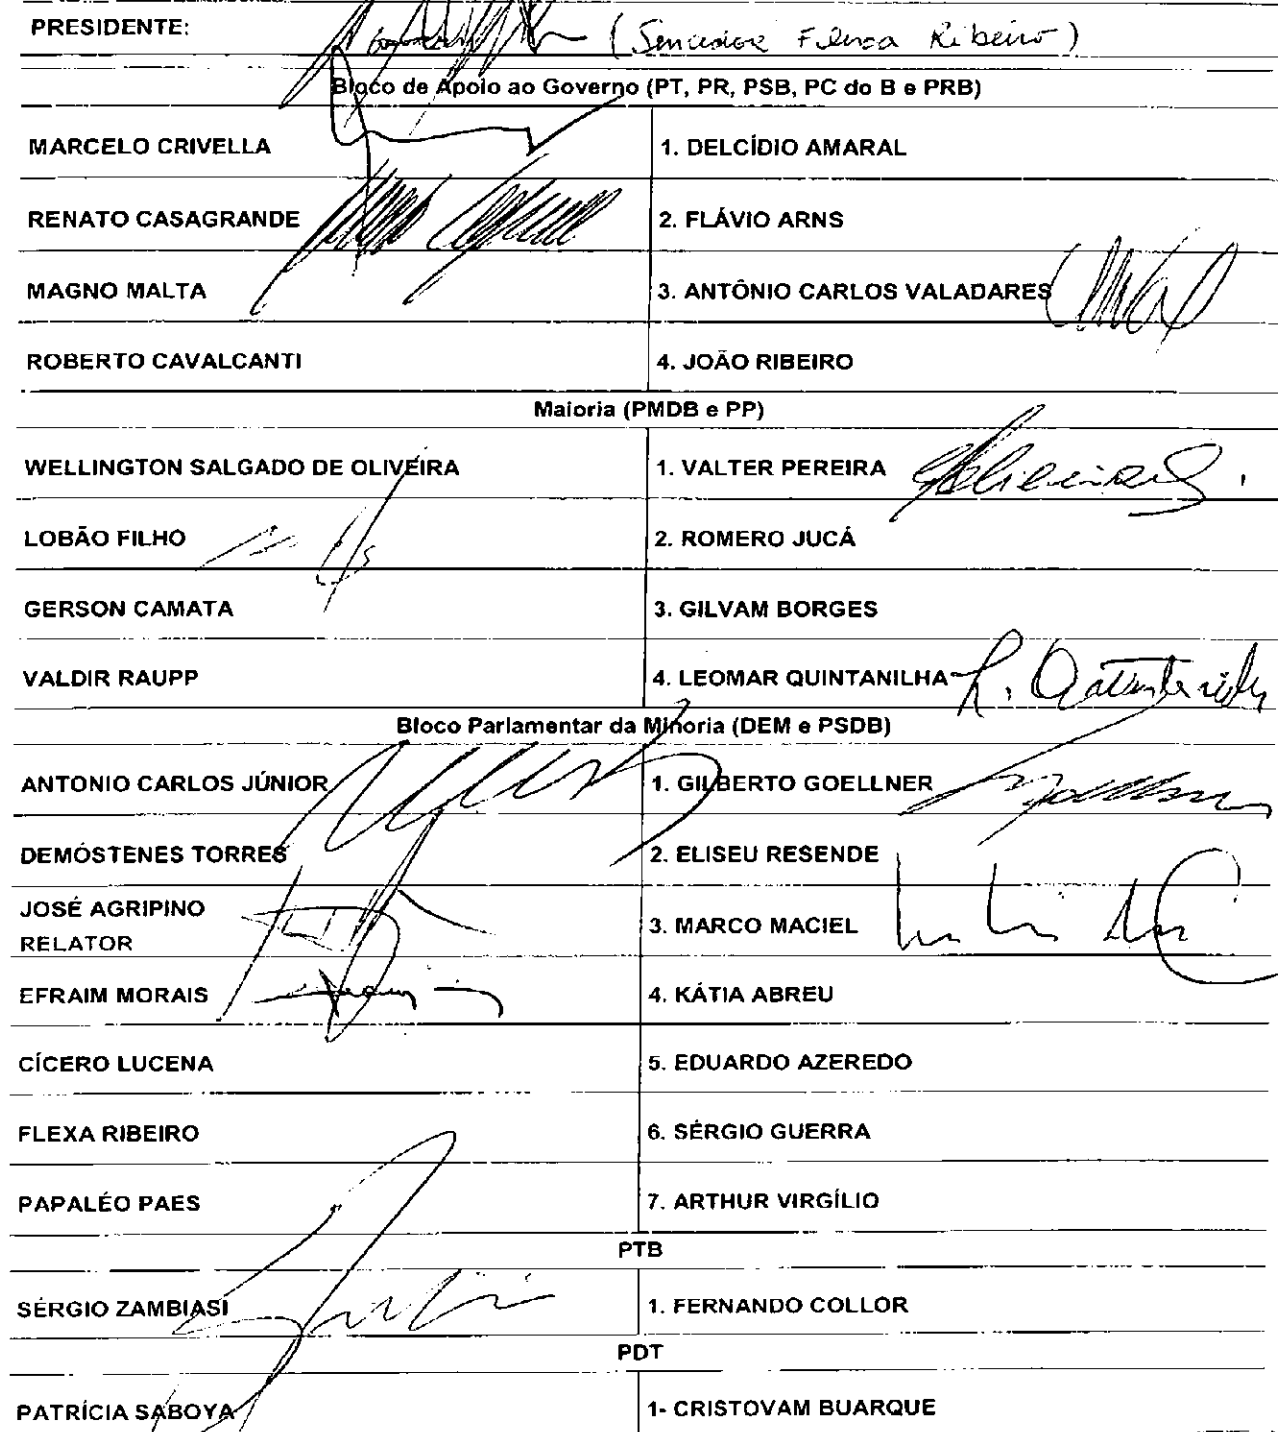 PRESIDENTE: (Senador Flexa Ribeiro)
Bloco de Apoio ao Governo (PT, PR, PSB, PC do B e PRB)
MARCELO CRIVELLA 1. DELCÍDIO AMARAL
RENATO CASAGRANDE 2. FLÁVIO ARNS
MAGNO MALTA 3. ANTÔNIO CARLOS VALADARES
ROBERTO CAVALCANTI 4. JOÃO RIBEIRO
Maioria (PMDB e PP)
WELLINGTON SALGADO DE OLIVEIRA 1. VALTER PEREIRA
LOBÃO FILHO 2. ROMERO JUCÁ
GERSON CAMATA 3. GILVAM BORGES
VALDIR RAUPP 4. LEOMAR QUINTANILHA
Bloco Parlamentar da Minoria (DEM e PSDB)
ANTONIO CARLOS JÚNIOR 1. GILBERTO GOELLNER
DEMÓSTENES TORRES 2. ELISEU RESENDE
JOSÉ AGRIPINO
RELATOR 3. MARCO MACIEL
EFRAIM MORAIS 4. KÁTIA ABREU
CÍCERO LUCENA 5. EDUARDO AZEREDO
FLEXA RIBEIRO 6. SÉRGIO GUERRA
PAPALÉO PAES 7. ARTHUR VIRGÍLIO
PTB
SÉRGIO ZAMBIASI 1. FERNANDO COLLOR
PDT
PATRÍCIA SABOYA 1- CRISTOVAM BUARQUE